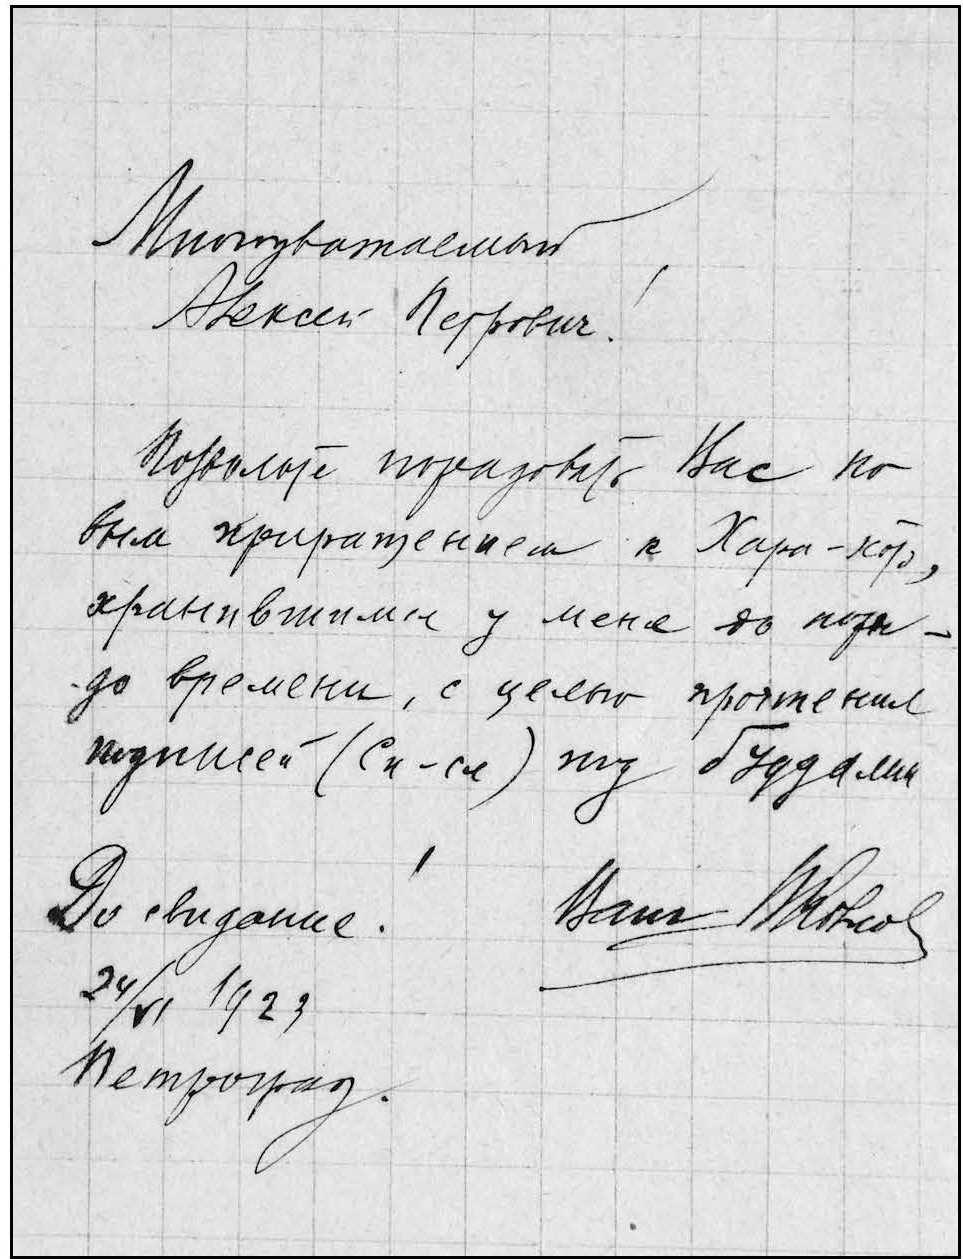 Многоуважаемый
Алексей Петрович!
Позвольте порадовать Вас но
вым приращением к Хара-хото,
хранившимся у меня до поры-
до времени, с целью прочтения
подписей (Си-ся) под буддами
До свидание!
Ваш ПКозлов
24/VI 1923
Петроград.